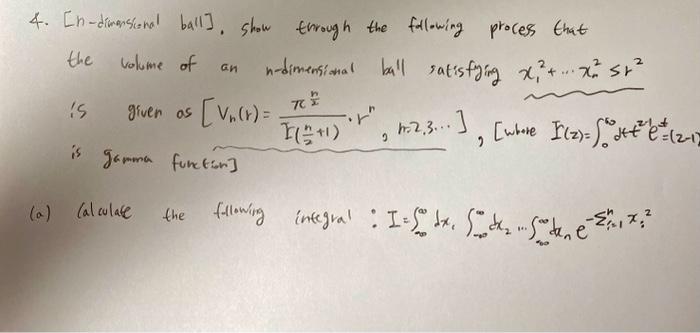 4. [n-dimensional ball]. show through the following process that
the volume of an n-dimensional ball satisfying x₁²+…xₙ² ≤ r²
is given as [Vₙ(r) = π^(n/2) / Γ(n/2 +1) · rⁿ, n=2,3…], [where Γ(z)=∫₀^∞ dt t^(z-1) e^(-t) = (z-1)
is gamma function]
(a) Calculate the following integral : I=∫_(-∞)^∞ dx₁ ∫_(-∞)^∞ dx₂ … ∫_(-∞)^∞ dxₙ e^(-Σⁿᵢ₌₁ xᵢ²)